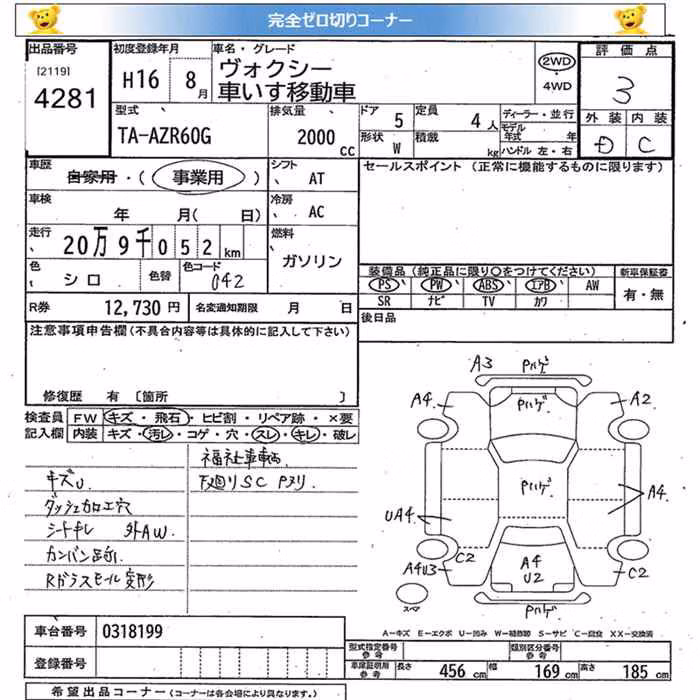 完全ゼロ切りコーナー
出品番号 [2119] 4281
初度登録年月 H16 8月
車名・グレード ヴォクシー
車いす移動車
2WD ・ 4WD
評価点 3
外装 内装
D C
型式 TA-AZR60G
排気量 2000 cc
ドア 5
定員 4人
形状 W
積載 kg
ディーラー・並行
モデル年式 年
ハンドル 左・右
車歴 自家用・(事業用)
シフト AT
セールスポイント (正常に機能するものに限ります)
車検 年 月( 日)
冷房 AC
走行 20万9千052km
燃料 ガソリン
色 シロ 色替 色コード 042
装備品 (純正品に限り○をつけてください)
新車保証書
PS PW ABS エアB AW
SR ナビ TV カワ
有・無
R券 12,730円 名変通知期限 月 日
後日品
注意事項申告欄 (不具合内容等は具体的に記入して下さい)
修復歴 有 [箇所 ]
検査員記入欄
FW キズ・飛石・ヒビ割・リペア跡・×要
内装 キズ・汚レ・コゲ・穴・スレ・キレ・破レ
福祉車車両
キズU
下廻りSC Pヌリ
ダッシュカロエ穴
シートキレ 外AW
カンバン跡
Rガラスモール変形
A3 Pハゲ
A4 Pハゲ A2
Pハゲ
UA4 A4
A4U3 C2 A4 U2 C2
スペア Pハゲ
A－キズ E－エクボ U－凹み W－補修跡 S－サビ C－腐食 XX－交換済
車台番号 0318199
登録番号
型式指定番号 参考
類別区分番号 参考
車庫証明用 参考 長さ 456cm 幅 169cm 高さ 185cm
希望出品コーナー (コーナーは各会場により異なります。)